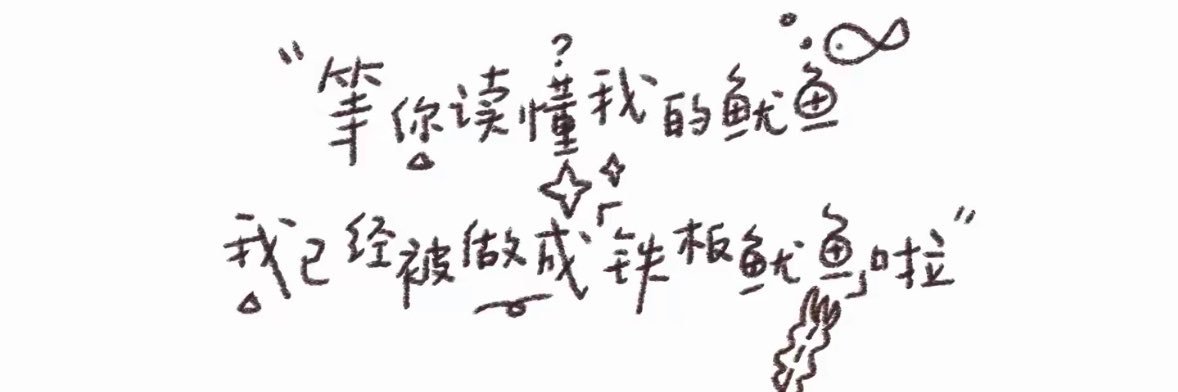 “等你读懂?我的鱿鱼
我已经被做成「铁板鱿鱼」啦”